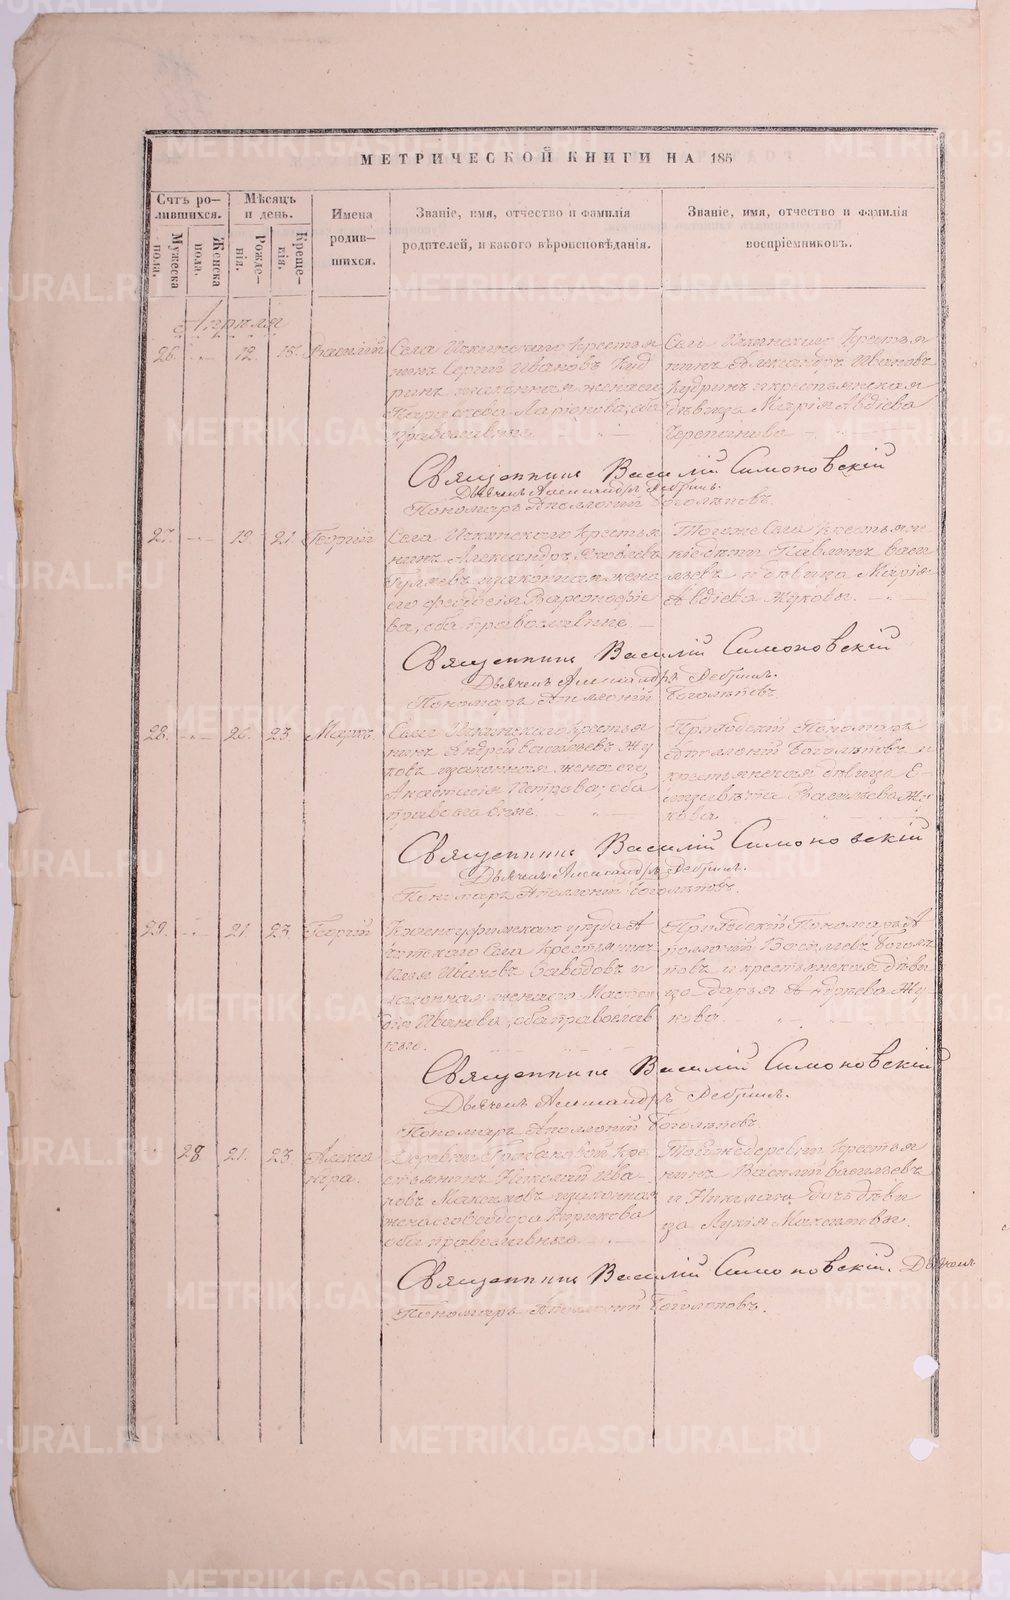 МЕТРИЧЕСКОЙ КНИГИ НА 185
Счтъ ро-
дившихся.
Мужеска пола.
Женска пола.
Мѣсяцъ
и день.
Рожде-
нія.
Креще-
нія.
Имена
родив-
шихся.
Званіе, имя, отчество и фамилія
родителей, и какого вѣроисповѣданія.
Званіе, имя, отчество и фамилія
воспріемниковъ.
Апрѣля
26. 12. 15. Василій
Села Ичкинского крестья
нинъ Сергій Ивановъ Куд
ринъ и законная жена его
Ларіонова, оба
православные
Села Ичкинского крестья
нинъ Александръ Ивановъ
Кудринъ и крестьянская
дѣвица Марія Авдіева
Черепанова
Священникъ Василій Симоновскій
Дьячекъ Александръ Ребринъ.
Пономарь Аполлоній Боголѣповъ.
27. 19. 21. Георгій
Села Ичкинского крестья
нинъ Александръ Яковлевъ
и законная жена
его Феодосія Варсонофіе
ва, оба православные
Тогоже Села крестьян
Павлинъ Васи
льевъ и дѣвица Марія
Авдіева Жуковы.
Священникъ Василій Симоновскій
Дьячекъ Александръ Ребринъ.
Пономарь Аполлоній Боголѣповъ.
28. 20. 23. Маркъ.
Села Ичкинского крестья
нинъ Андрей Васильевъ Жу
ковъ и законная жена его
Анастасія Петрова, оба
православные
Приходскій Пономарь
Аполлоній Боголѣповъ и
крестьянская дѣвица Е-
лизавета Васильева Жу-
кова
Священникъ Василій Симоновскій
Дьячекъ Александръ Ребринъ.
Пономарь Аполлоній Боголѣповъ.
29. 21 23. Георгій
Красноуфимского уѣзда А
читского Села крестьянинъ
Илья Ивановъ Заводовъ и
законная жена его
Иванова, оба православ
ные.
Приходскій Пономарь А
поллоній Васильевъ Боголѣ
повъ и крестьянская дѣви
ца Дарья Андрѣева Жу
кова
Священникъ Василій Симоновскій
Дьячекъ Александръ Ребринъ.
Пономарь Аполлоній Боголѣповъ.
28 21. 23. Алекса
ндра.
Деревни кре
стьянинъ Николай Ива
новъ Максимовъ и законная
жена его Феодора
оба православные
Тойже деревни крестья
нинъ Василій Васильевъ
и дочь дѣви
ца Лукія Максимовы.
Священникъ Василій Симоновскій. Дьячекъ
Пономарь Аполлоній Боголѣповъ.
METRIKI.GASO-URAL.RU